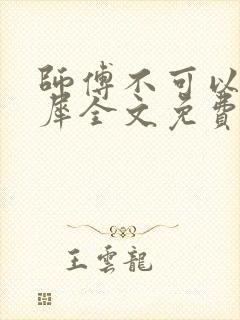 師傅不可以
犀全文免費
王雲龍